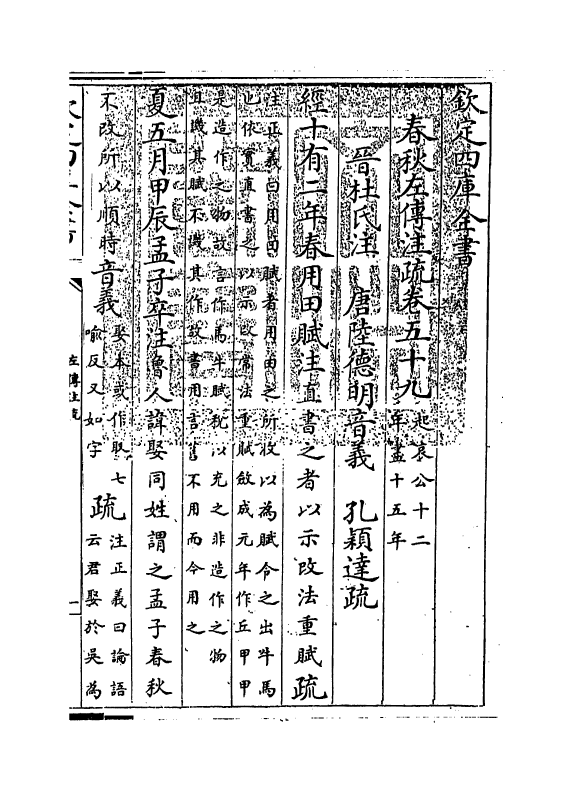 欽定四庫全書
春秋左傳注疏卷五十九起哀公十二
年盡十五年
晉杜氏注　唐陸德明音義　孔穎達疏
經十有二年春用田賦注直書之者以示改法重賦疏
注正義曰用田賦者用田之所收以為賦令之出牛馬
也依實直書之以示改常法重賦斂成元年作丘甲甲
是造作之物故言作馬牛賦稅以充之非造作之物
且譏其賦不譏其作故書用言舊不用而今用之
夏五月甲辰孟子卒注魯人諱娶同姓謂之孟子春秋
不改所以順時音義娶本或作取七
喻反又如字疏注正義曰論語
云君娶於吳為
左傳注疏
一